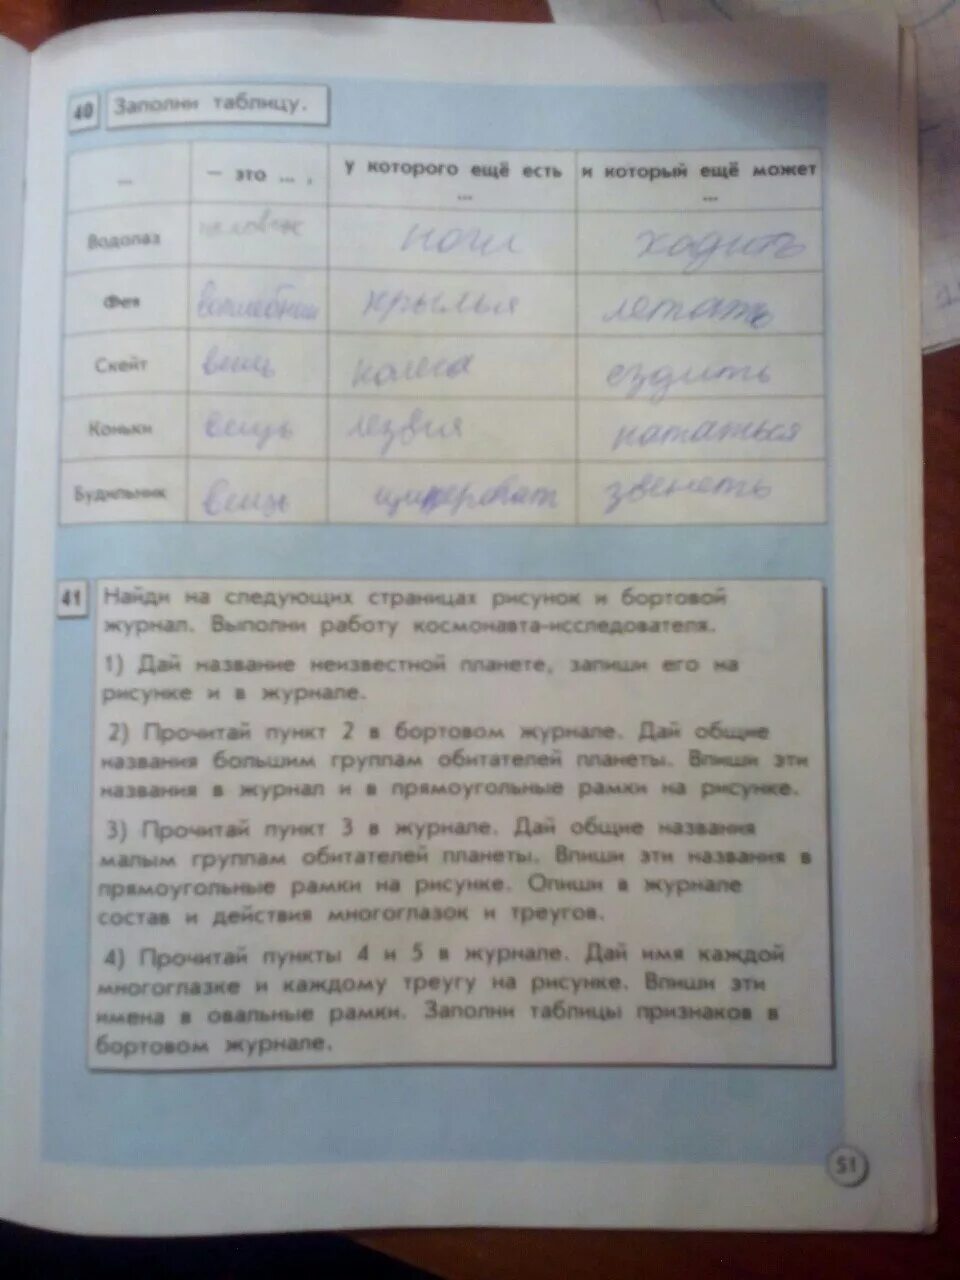 40 Заполни таблицу.
... – это ... , у которого ещё есть ... и который ещё может ...
Водолаз человек ноги ходить
Фея крылья летать
Скейт вещь колеса ездить
Коньки вещь лезвия кататься
Будильник вещь циферблат звенеть
41 Найди на следующих страницах рисунок и бортовой
журнал. Выполни работу космонавта-исследователя.
1) Дай название неизвестной планете, запиши его на
рисунке и в журнале.
2) Прочитай пункт 2 в бортовом журнале. Дай общие
названия большим группам обитателей планеты. Впиши эти
названия в журнал и в прямоугольные рамки на рисунке.
3) Прочитай пункт 3 в журнале. Дай общие названия
малым группам обитателей планеты. Впиши эти названия в
прямоугольные рамки на рисунке. Опиши в журнале
состав и действия многоглазок и треугов.
4) Прочитай пункты 4 и 5 в журнале. Дай имя каждой
многоглазке и каждому треугу на рисунке. Впиши эти
имена в овальные рамки. Заполни таблицы признаков в
бортовом журнале.
51